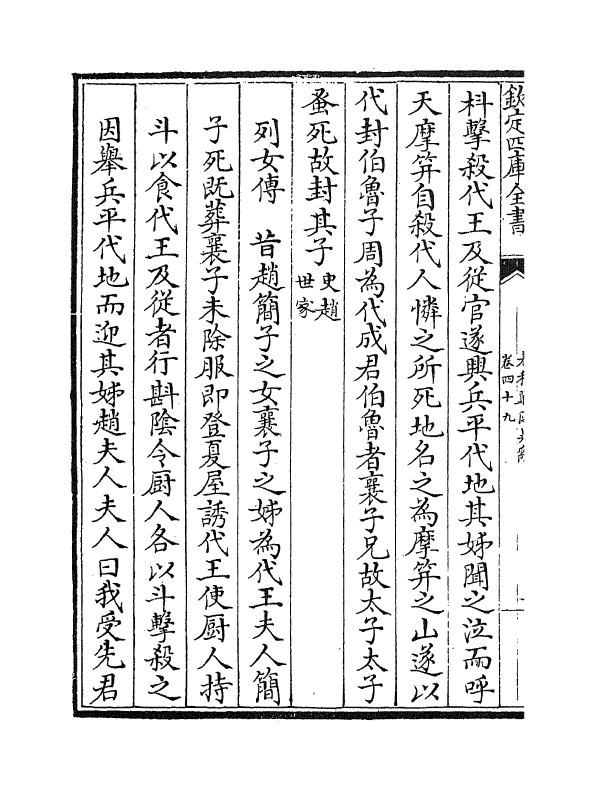 欽定四庫全書
卷四十九
枓擊殺代王及從官遂興兵平代地其姊聞之泣而呼
天摩笄自殺代人憐之所死地名之為摩笄之山遂以
代封伯魯子周為代成君伯魯者襄子兄故太子太子
蚤死故封其子史趙
世家
列女傳　昔趙簡子之女襄子之姊為代王夫人簡
子死既葬襄子未除服即登夏屋誘代王使厨人持
斗以食代王及從者行斟陰令厨人各以斗擊殺之
因舉兵平代地而迎其姊趙夫人夫人曰我受先君